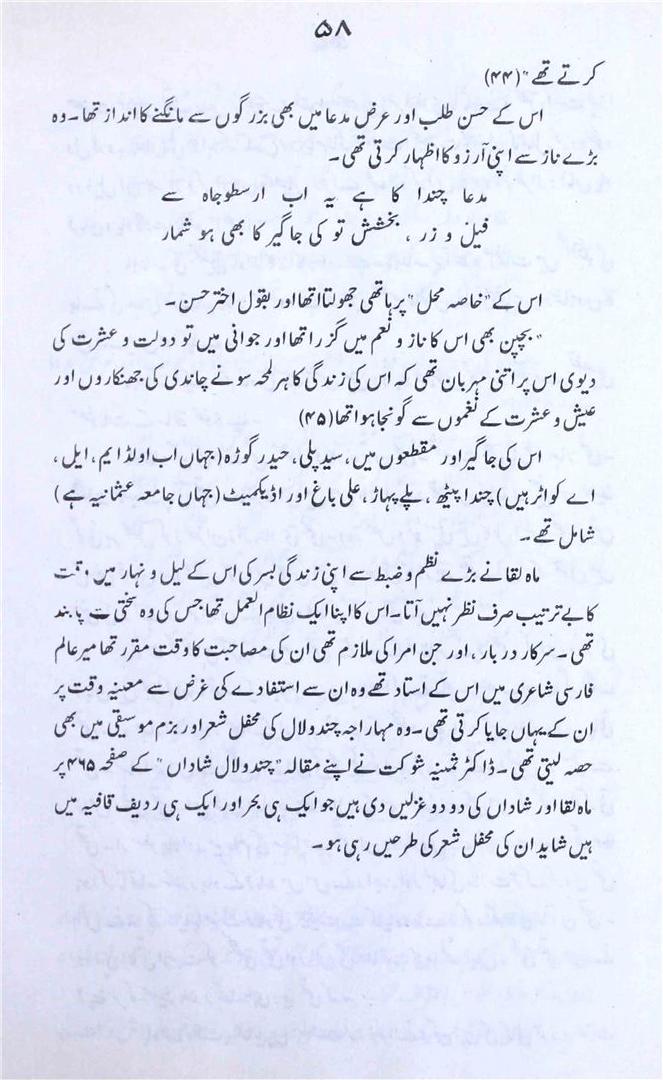 ۵۸
کرتے تھے" (۴۴)
اس کے حسن طلب اور عرض مدعا میں بھی بزرگوں سے مانگنے کا انداز تھا۔ وہ
بڑے ناز سے اپنی آرزو کا اظہار کرتی تھی۔
مدعا چندا کا ہے یہ اب ارسطو جاہ سے
فیل و زر ، بخشش تو کی جاگیر کا بھی ہو شمار
اس کے "خاصہ محل" پر ہاتھی جھولتا تھا اور بقول اختر حسن۔
"بچپن بھی اس کا ناز و نعم میں گزرا تھا اور جوانی میں تو دولت و عشرت کی
دیوی اس پر اتنی مہربان تھی کہ اس کی زندگی کا ہر لمحہ سونے چاندی کی جھنکاروں اور
عیش و عشرت کے نغموں سے گونجا ہوا تھا (۴۵)
اس کی جاگیر اور مقطعوں میں، سید پلی، حیدر گوڑہ (جہاں اب اولڈ ایم، ایل،
اے کواٹر ہیں) چندا پیٹھ، پلے پہاڑ، علی باغ اور اڈیکمیٹ (جہاں جامعہ عثمانیہ ہے)
شامل تھے۔
ماہ لقا نے بڑے نظم و ضبط سے اپنی زندگی بسر کی اس کے لیل و نہار میں وقت
کا بے ترتیب صرف نظر نہیں آتا۔ اس کا اپنا ایک نظام العمل تھا جس کی وہ سختی سے پابند
تھی۔ سرکار دربار، اور جن امرا کی ملازم تھی ان کی مصاحبت کا وقت مقرر تھا میر عالم
فارسی شاعری میں اس کے استاد تھے وہ ان سے استفادے کی غرض سے معینہ وقت پر
ان کے یہاں جایا کرتی تھی۔ وہ مہاراجہ چندولال کی محفل شعر اور بزم موسیقی میں بھی
حصہ لیتی تھی۔ ڈاکٹر ثمینہ شوکت نے اپنے مقالہ "چندولال شاداں" کے صفحہ ۴۶۵ پر
ماہ لقا اور شاداں کی دو دو غزلیں دی ہیں جو ایک ہی بحر اور ایک ہی ردیف قافیہ میں
ہیں شاید ان کی محفل شعر کی طرحیں رہی ہو۔